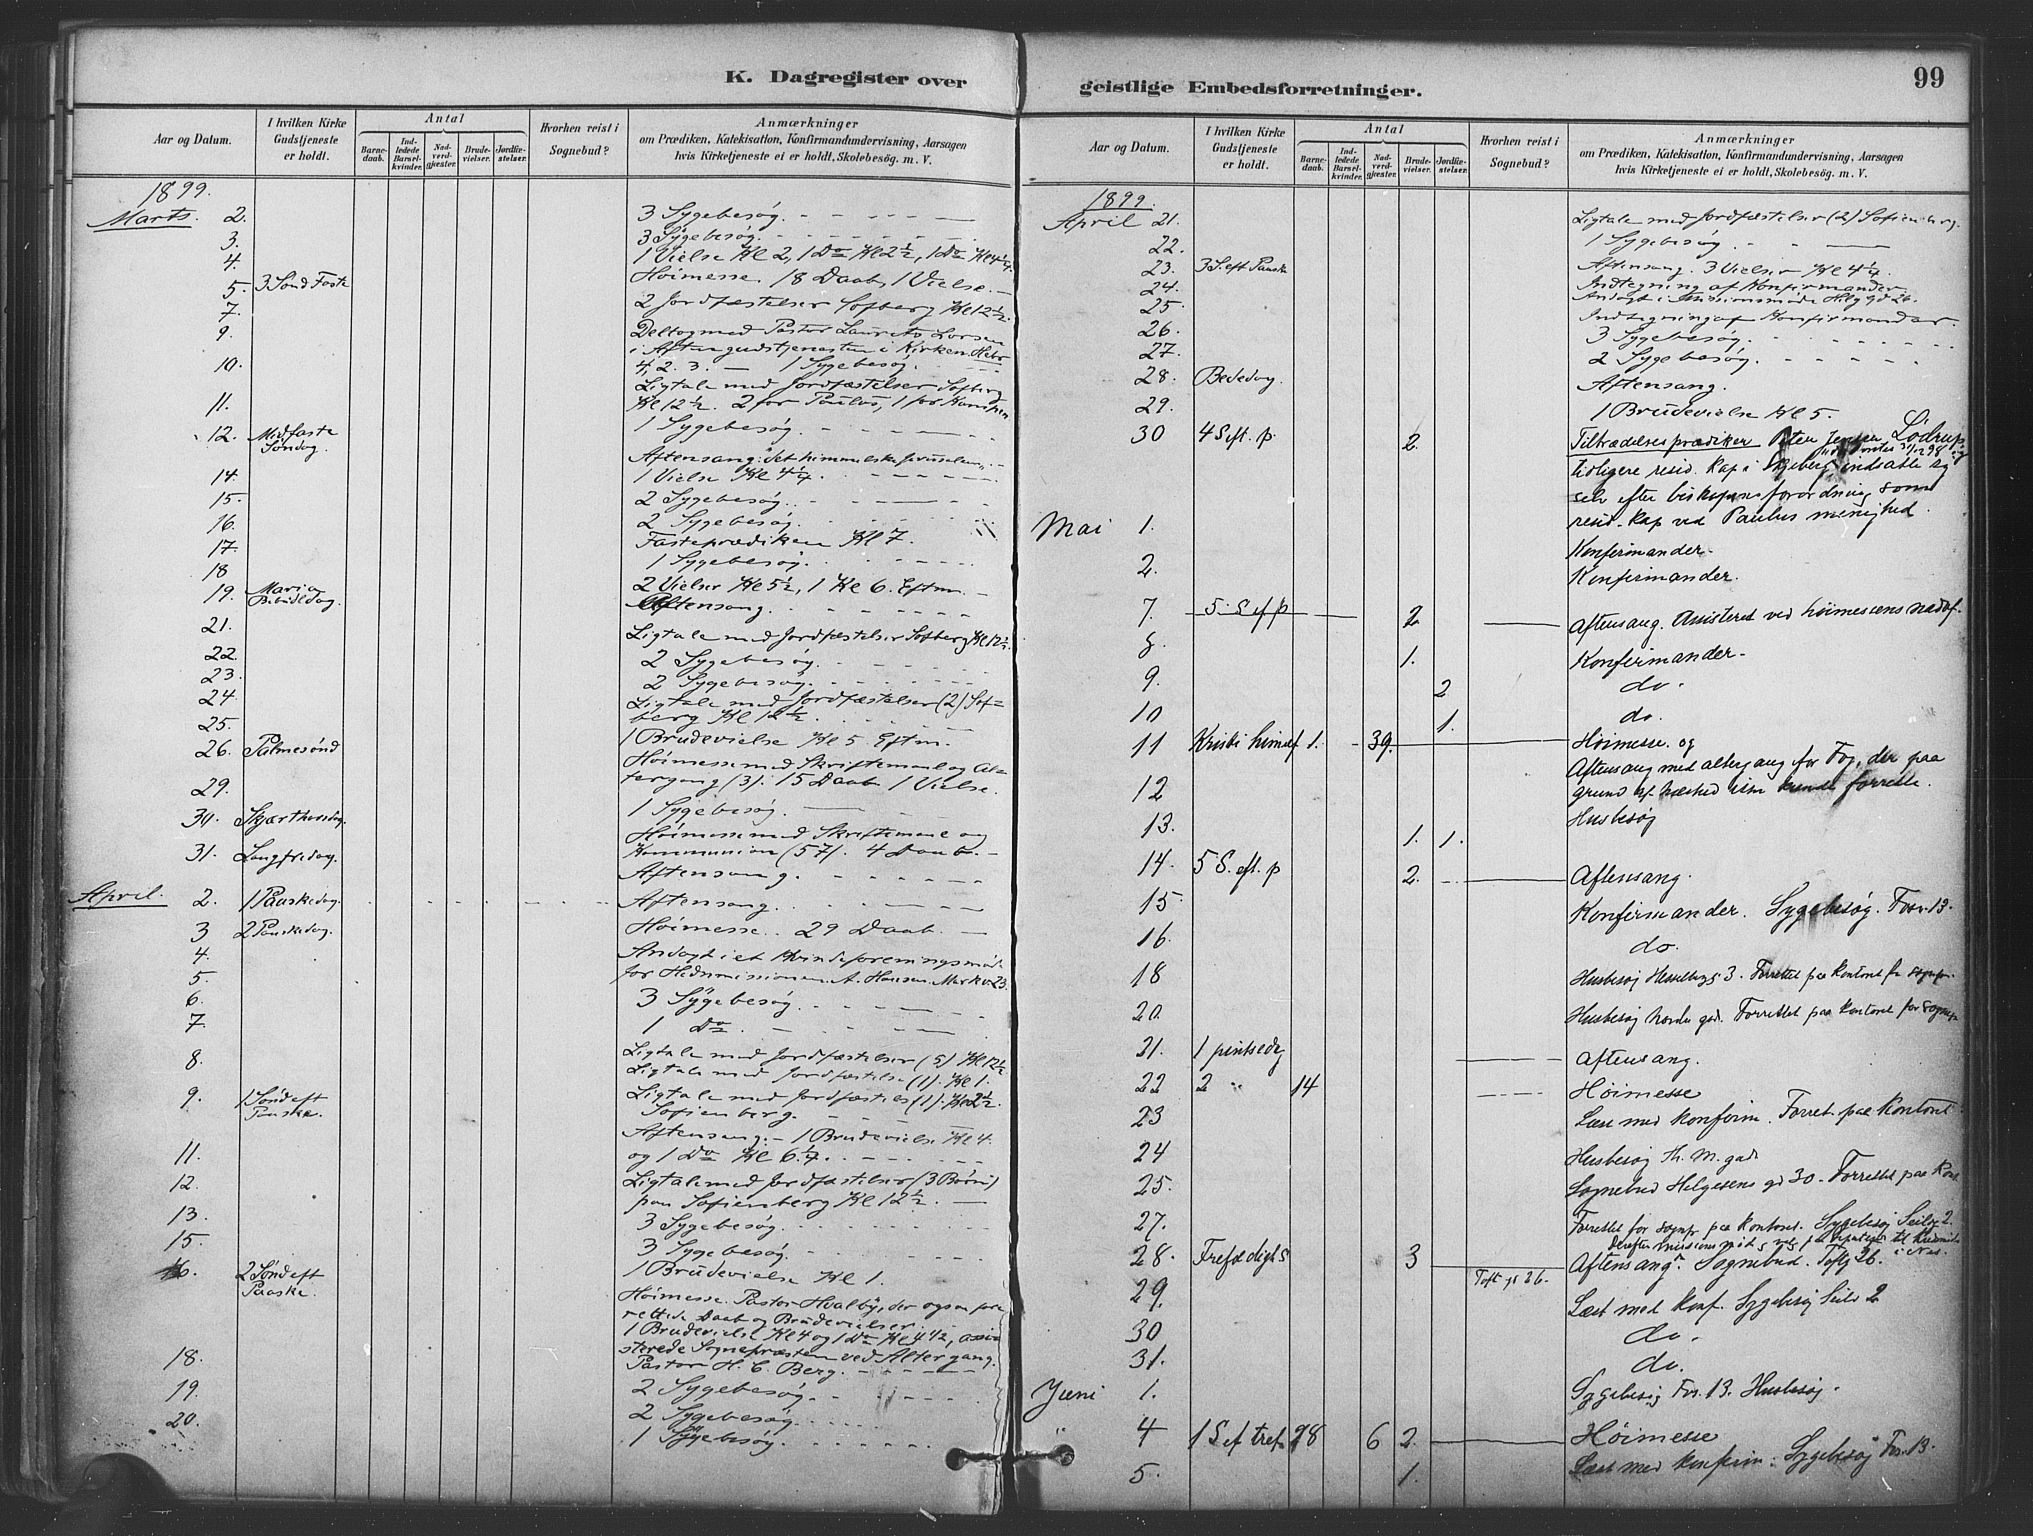 K. Dagregister over
Aar og Datum.
I hvilken Kirke Gudstjeneste er holdt.
Antal
Barnedaab.
Indledede Barselkvinder.
Nadverdgjester.
Brudevielser.
Jordfæstelser.
Hvorhen reist i Sognebud?
Anmærkninger
om Prædiken, Katekisation, Konfirmandundervisning, Aarsagen
hvis Kirketjeneste ei er holdt, Skolebesög. m. V.
1899.
Marts. 2. 3 Sygebesøg.
3. 3 Sygebesøg.
4. 1 Vielse Kl 2, 1 Do Kl 2½, 1 Do Kl 4¼.
5. 3 Sønd Faste Høimesse. 18 Daab, 1 Vielse.
7. 2 Jordfæstelser Sofberg Kl 12½.
9. Deltog med Pastor Laurits Larsen
i Aftengudstjenesten i Kirken. Hebr
4, 2. 3. — 1 Sygebesøg.
10. Ligtale med Jordfæstelser Sofberg
Kl 12½. 2 for Paulus, 1 for Kampen
11. 1 Sygebesøg.
12. Midfaste Søndag. Aftensang: det himmelske Jerusalem.
14. 1 Vielse Kl 4¼.
15. 2 Sygebesøg.
16. 2 Sygebesøg.
17. Fasteprædiken Kl 7.
18 1 Sygebesøg.
2 Vielser Kl 5½, 1 Kl 6. Eftm.
19. Mariæ Bebudelsdag. Aftensang.
21. Ligtale med Jordfæstelser Sofberg Kl 12½.
22. 2 Sygebesøg.
23. 2 Sygebesøg.
24. Ligtale med Jordfæstelser (2) Sofberg
Kl 12½.
25. 1 Brudevielse Kl 5 Eftm.
26. Palmesønd Høimesse med Skriftemaal og Altergang
(3). 15 Daab 1 Vielse.
29. 1 Sygebesøg.
30. Skjærthorsdag. Høimesse med Skriftemaal og
Kommunion (57). 4 Daab.
31. Langfredag. Aftensang.
April. 2. 1 Paaskedag. Aftensang.
3 2 Paaskedag. Høimesse. 29 Daab.
4. Andagt i et Kvindeforeningsmøde
for Hedn.missionen A. Hansen Markv 23.
5. 3 Sygebesøg.
6. 1 Do.
7. Ligtale med Jordfæstelser (5) Kl 12½
8. Ligtale med Jordfæstelse (1). Kl 1.
Ligtale med Jordfæstels (1). Kl 2½.
Sofienberg.
9. 1 Sønd eft Paaske. Aftensang. — 1 Brudevielse Kl 4.
og 1 Do Kl 6¼.
11. Ligtale med Jordfæstelser (3 Børn)
paa Sofienberg Kl 12½.
12. 3 Sygebesøg.
13. 3 Sygebesøg.
15. 1 Brudevielse Kl 1.
16. 2 Sønd eft Paaske. Høimesse. Pastor Hvalby, der ogsaa forrettede
Daab og Brudevielser.
1 Brudevielse Kl 4 og 1 Do Kl 4½, assisterede
Sognepræsten ved Altergang.
Pastor H. C. Berg.
18. 2 Sygebesøg.
19. 2 Sygebesøg.
20. 1 Sygebesøg.
geistlige Embedsforretninger.
99
Aar og Datum.
I hvilken Kirke Gudstjeneste er holdt.
Antal
Barnedaab.
Indledede Barselkvinder.
Nadverdgjester.
Brudevielser.
Jordfæstelser.
Hvorhen reist i Sognebud?
Anmærkninger
om Prædiken, Katekisation, Konfirmandundervisning, Aarsagen
hvis Kirketjeneste ei er holdt, Skolebesög. m. V.
1899.
April 21. Ligtale med Jordfæstelser (2) Sofienberg.
22. 1 Sygebesøg.
23. 3 S. eft Paaske Aftensang. 3 Vielser Kl 4¼.
24. Indtegning af Konfirmander
25. Andagt i Missionsmøde Helg Gd 26.
26. Indtegning af Konfirmander.
27. 3 Sygebesøg.
2 Sygebesøg.
28. Bededag Aftensang.
29. 1 Brudevielse Kl 5.
30 4 S eft. p. 2. Tiltrædelsesprædiken Peter Jensen Lødrup,
tidligere resid. Kap i Skjeberg indsatte sig
selv efter biskopens forordning som
resid. Kap ved Paulus menighed.
Mai 1. Konfirmander.
2. Konfirmander.
7. 5. S ef p 2. Aftensang. Assisteret ved høimessens nadv.
8. 1. Konfirmander.
9. 2 do.
10 1. do.
11 Kristi himmelf 1. 39. Høimesse og
Aftensang med altergang for Fog, der paa
grund af hæshed ikke kunde forrette.
12 Husbesøg
13. 1. 1.
14. 5 S. eft. p 2. Aftensang.
15 Konfirmander. Sygebesøg. Fosv. 13.
16. do.
18 Husbesøg Hesselbergs g 3. Forrettet paa Kontoret for sognep.
20. Husbesøg Nordre gad. Forrettet paa Kontoret for sognep
21. 1 pintsedg Aftensang.
22 2 " 14 Høimesse
23 Læst med konfirm. Forret. paa Kontoret
24 Husbesøg Th. M. gad.
25. Sognebud Helgesens gd 30. Forrettet paa Kont.
27. Forrettet for sognep paa kontoret. Sygebesøg Seild 2.
28. Trefoldigh s 3 Toft gd 26. Aftensang. Sognebud. Toftg 26.
29. Læst med Konf. Sygebesøg Seild 2
30 do.
31. do.
Juni 1. Sygebesøg Fos. 13. Husbesøg.
" 4 1 S ef tref 28 6 2. Høimesse
5. 1. Læst med konfirm. Sygebesøg Fos. 13.